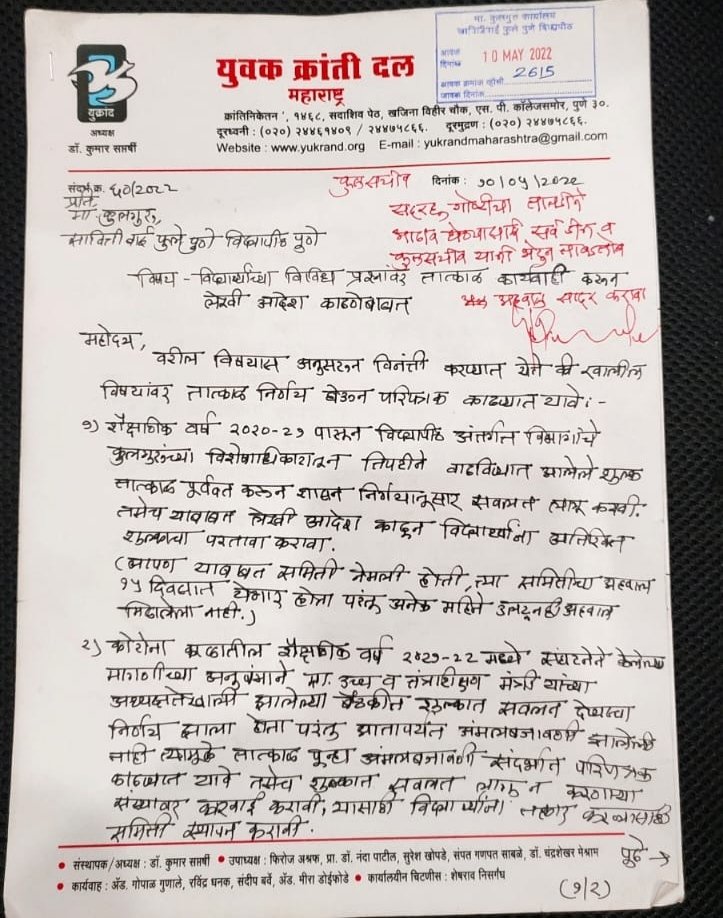 मा. कुलगुरु कार्यालय
सावित्रीबाई फुले पुणे विद्यापीठ
आवक
दिनांक 10 MAY 2022
आवक क्रमांक 2615
जावक दिनांक
युक्रांद
अध्यक्ष
डॉ. कुमार सप्तर्षी
युवक क्रांती दल
महाराष्ट्र
क्रांतिनिकेतन ', १४६८, सदाशिव पेठ, खजिना विहीर चौक, एस. पी. कॉलेजसमोर, पुणे ३०.
दूरध्वनी : (०२०) २४४६१४०९ / २४४७५८६६. दूरमुद्रण : (०२०) २४४७५८६६.
Website : www.yukrand.org E-mail : yukrandmaharashtra@gmail.com
संदर्भ क्र. ६०/२०२२
दिनांक: १०/०५/२०२२
कुलसचिव
सदरहू गोष्टींचा तातडीने
आढावा घेण्यासाठी सर्व डीन व
कुलसचिव यांनी भेटून तातडीने
अहवाल सादर करावा
प्रति,
मा. कुलगुरू,
सावित्रीबाई फुले पुणे विद्यापीठ पुणे
विषय - विद्यार्थ्यांच्या विविध प्रश्नांवर तात्काळ कार्यवाही करून
लेखी आदेश काढणेबाबत
महोदय,
वरील विषयास अनुसरून विनंती करण्यात येते की खालील
विषयांवर तात्काळ निर्णय घेऊन परिपत्रक काढण्यात यावे :-
१) शैक्षणिक वर्ष २०२०-२१ पासून विद्यापीठ अंतर्गत विभागांचे
कुलगुरूंच्या विशेषाधिकारातून तिपटीने वाढविण्यात आलेले शुल्क
तात्काळ पूर्ववत करून शासन निर्णयानुसार सवलत लागू करावी.
तसेच याबाबत लेखी आदेश काढून विद्यार्थ्यांना अतिरिक्त
शुल्काचा परतावा करावा.
(आपण याबाबत समिती नेमली होती, त्या समितीचा अहवाल
१५ दिवसात येणार होता परंतु अनेक महिने उलटूनही अहवाल
मिळालेला नाही.)
२) कोरोना काळातील शैक्षणिक वर्ष २०२१-२२ मध्ये संघटनेने केलेल्या
मागणीच्या अनुषंगाने मा. उच्च व तंत्रशिक्षण मंत्री यांच्या
अध्यक्षतेखाली झालेल्या बैठकीत शुल्कात सवलत देण्याचा
निर्णय झाला होता परंतु आतापर्यंत अंमलबजावणी झालेली
नाही त्यामुळे तात्काळ पुन्हा अंमलबजावणी संदर्भात परिपत्रक
काढण्यात यावे तसेच शुल्कात सवलत लागू न करणाऱ्या
संस्थांवर कारवाई करावी, यासाठी विद्यार्थ्यांना तक्रार करण्यासाठी
समिती स्थापन करावी.
पुढे →
• संस्थापक/अध्यक्ष : डॉ. कुमार सप्तर्षी • उपाध्यक्ष : फिरोज अश्रफ, प्रा. डॉ. नंदा पाटील, सुरेश खोपडे, संपत गणपत साबळे, डॉ. चंद्रशेखर मेश्राम
• कार्यवाह : ॲड. गोपाळ गुणाले, रविंद्र धनक, संदीप बर्वे, ॲड. मीरा डोईफोडे • कार्यालयीन चिटणीस : शेषराव निसर्गंध
(१/२)